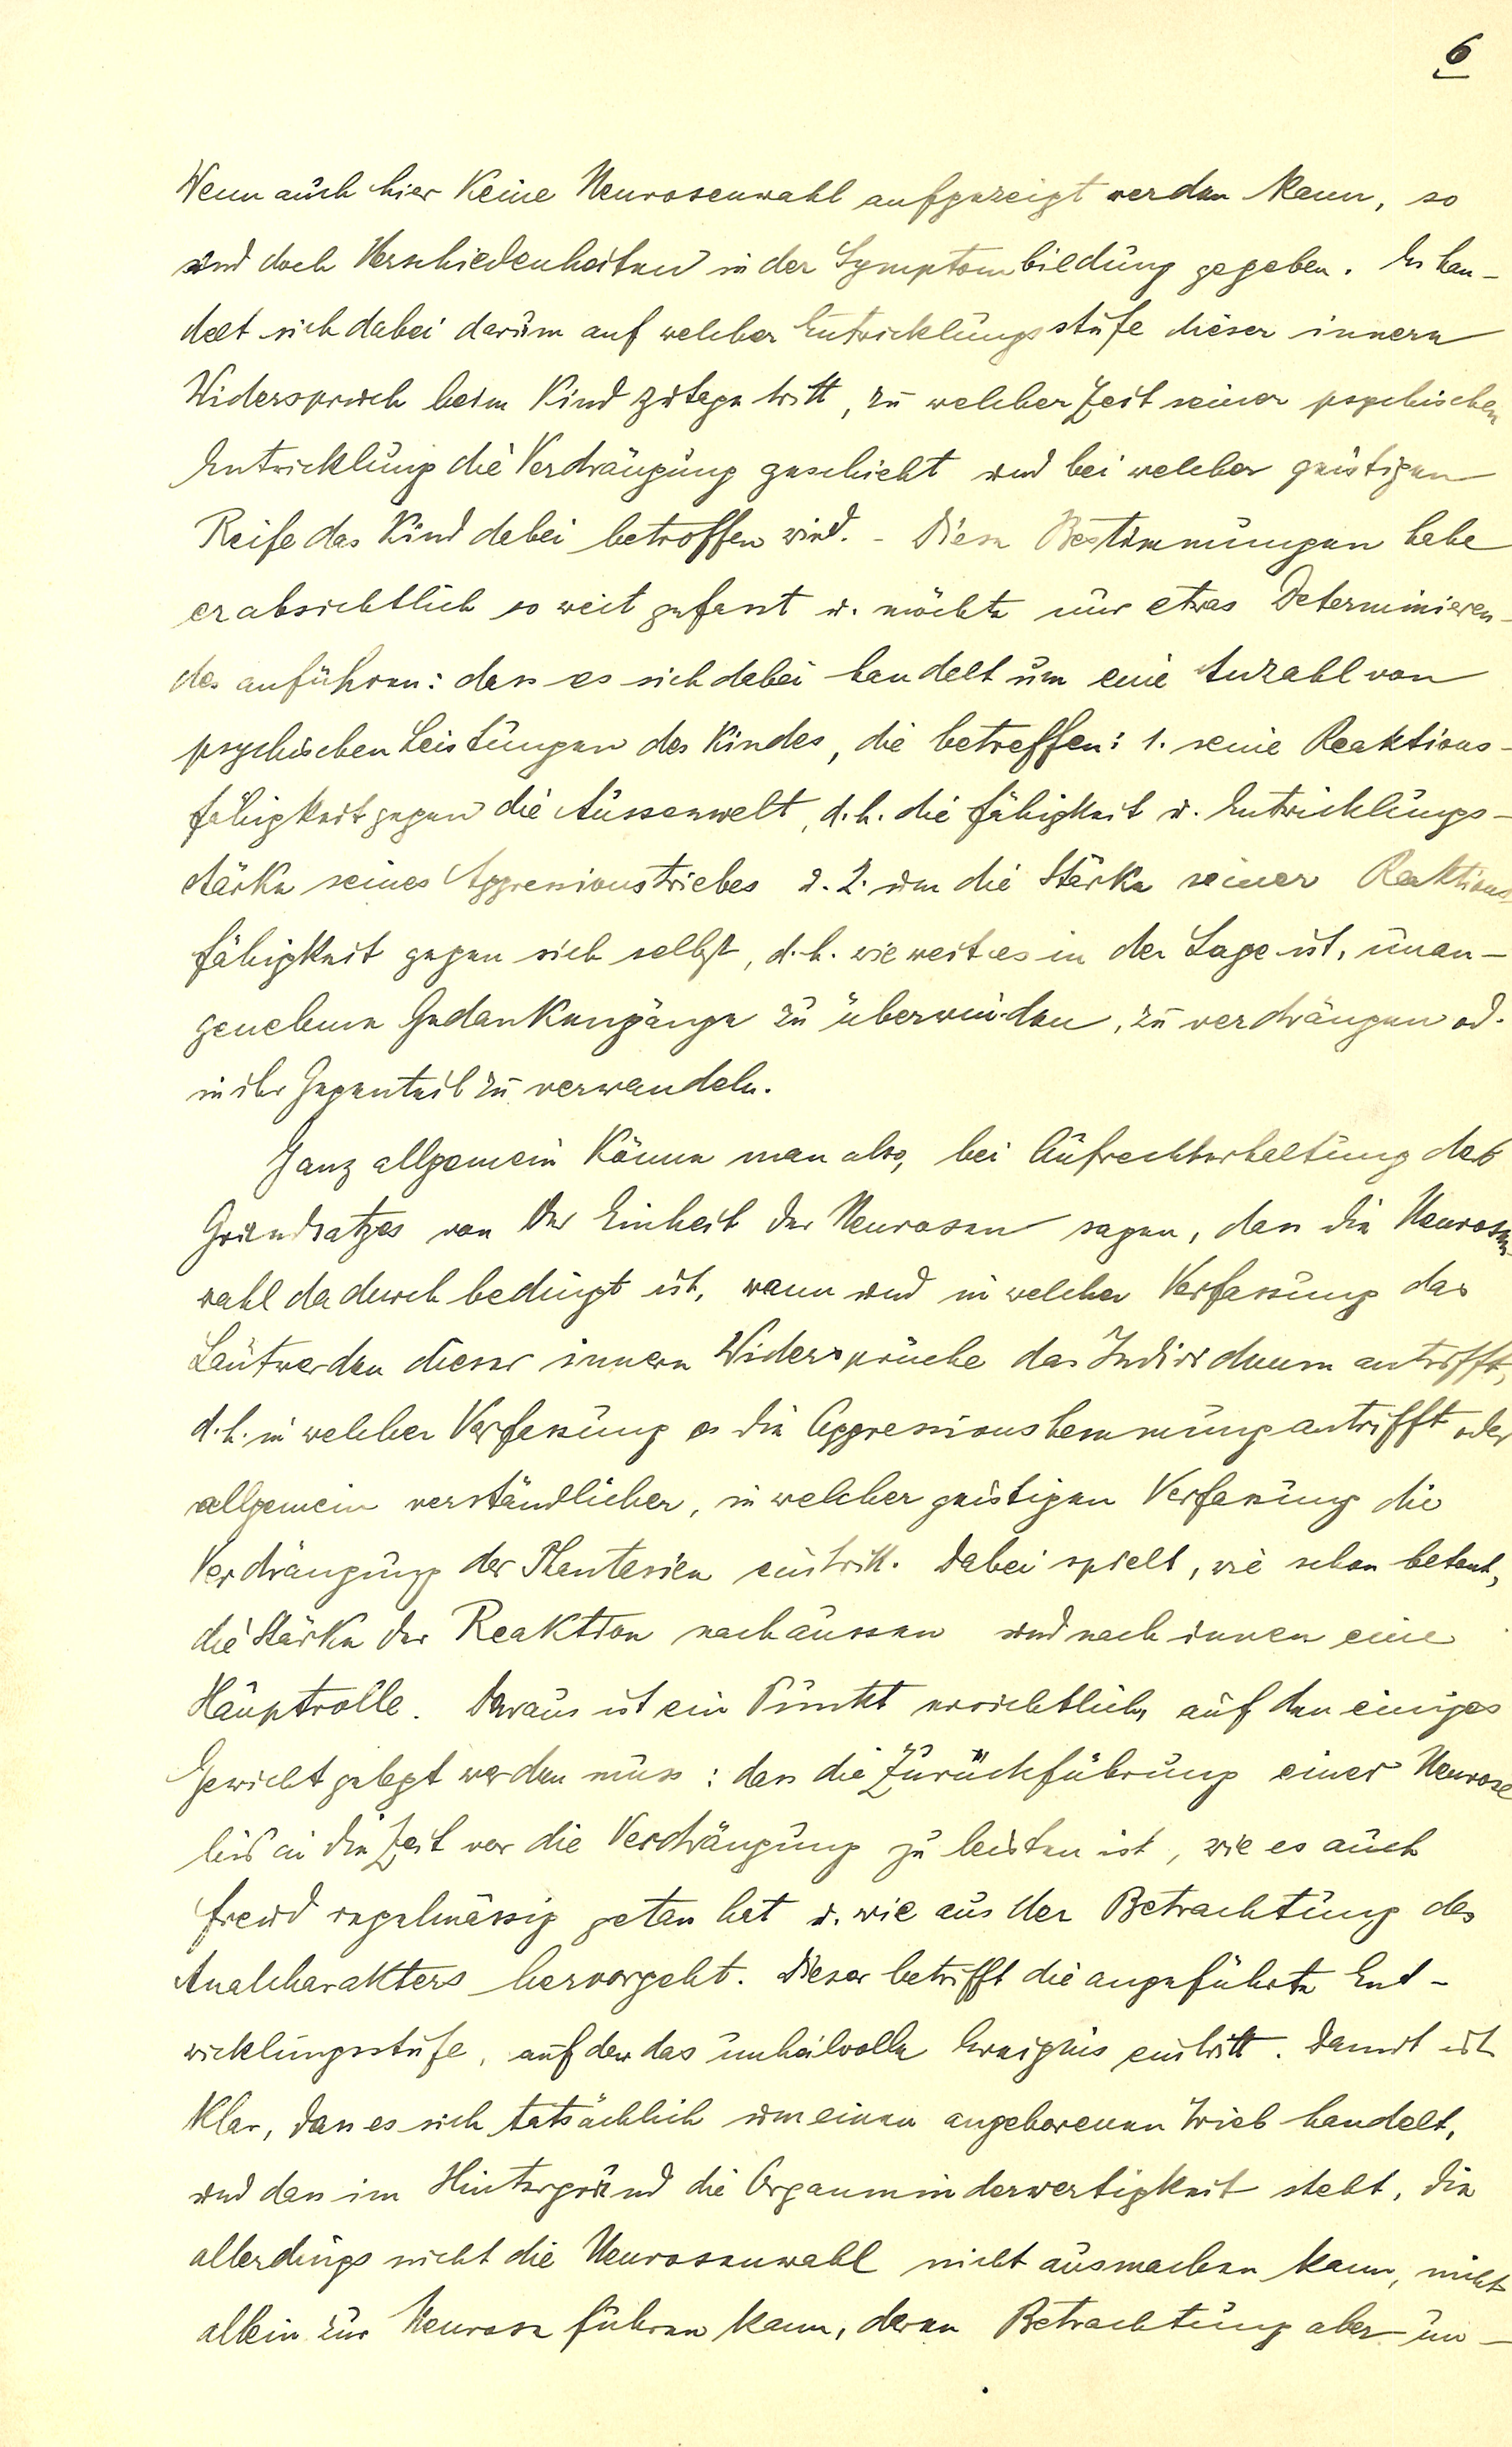 6
Wenn auch hier keine Neurosenwahl aufgezeigt werden kann, so
sind doch Verschiedenheiten in der Symptombildung gegeben. Es han-
delt sich dabei darum auf welcher Entwicklungsstufe dieser innere
Widerspruch beim Kind zutage tritt, zu welcher Zeit seiner psychischen
Entwicklung die Verdrängung geschieht und bei welcher geistigen
Reife das Kind dabei betroffen wird. - Diese Bestimmungen habe
er absichtlich so weit gefasst u. möchte nur etwas Determinieren-
des anführen: dass es sich dabei handelt um eine Anzahl von
psychischen Leistungen des Kindes, die betreffen: 1. seine Reaktions-
fähigkeit gegen die Aussenwelt, d.h. die Fähigkeit u. Entwicklungs-
stärke seines Aggressionstriebes u. 2. um die Stärke seiner Reaktions-
fähigkeit gegen sich selbst, d.h. wie weit es in der Lage ist, unan-
genehme Gedankengänge zu überwinden, zu verdrängen od.
in ihr Gegenteil zu verwandeln.
Ganz allgemein könne man also, bei Aufrechterhaltung des
Grundsatzes von der Einheit der Neurosen sagen, dass die Neurosen-
wahl dadurch bedingt ist, wann und in welcher Verfassung das
Lautwerden dieser innern Widersprüche das Individuum antrifft,
d.h. in welcher Verfassung es die Aggressionshemmung antrifft oder
allgemein verständlicher, in welcher geistigen Verfassung die
Verdrängung der Phantasien eintritt. Dabei spielt, wie schon betont,
die Stärke der Reaktion nach aussen und nach innen eine
Hauptrolle. Daraus ist ein Punkt ersichtlich, auf den einiges
Gewicht gelegt werden muss: dass die Zurückführung einer Neurose
bis in die Zeit vor die Verdrängung zu leisten ist, wie es auch
Freud regelmässig getan hat u. wie aus der Betrachtung des
Analcharakters hervorgeht. Dieser betrifft die angeführte Ent-
wicklungsstufe, auf der das unheilvolle Ereignis eintritt. Damit ist
klar, dass es sich tatsächlich um einen angeborenen Trieb handelt,
und dass im Hintergrund die Organminderwertigkeit steht, die
allerdings nicht die Neurosenwahl nicht ausmachen kann, nicht
allein zur Neurose führen kann, deren Betrachtung aber un-